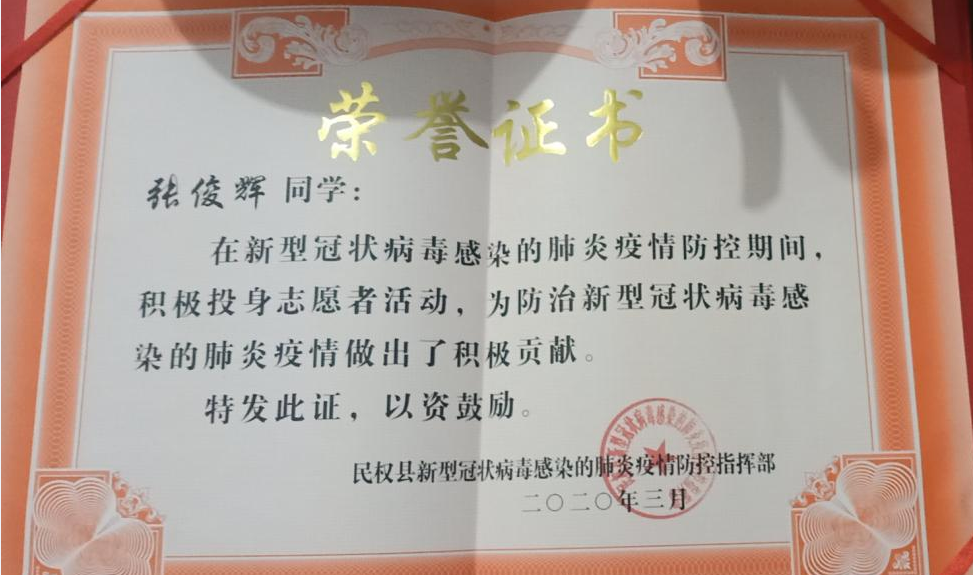 荣誉证书
张俊辉同学：
在新型冠状病毒感染的肺炎疫情防控期间，
积极投身志愿者活动，为防治新型冠状病毒感
染的肺炎疫情做出了积极贡献。
特发此证，以资鼓励。
民权县新型冠状病毒感染的肺炎疫情防控指挥部
二〇二〇年三月